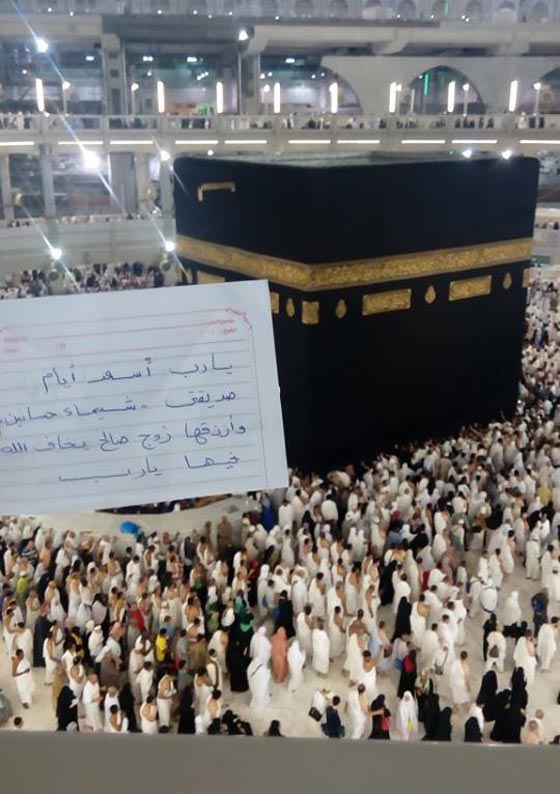 يارب أسعد أيام
صديقتى "شيماء حسانين"
وأرزقها زوج صالح يخاف الله
فيها يارب